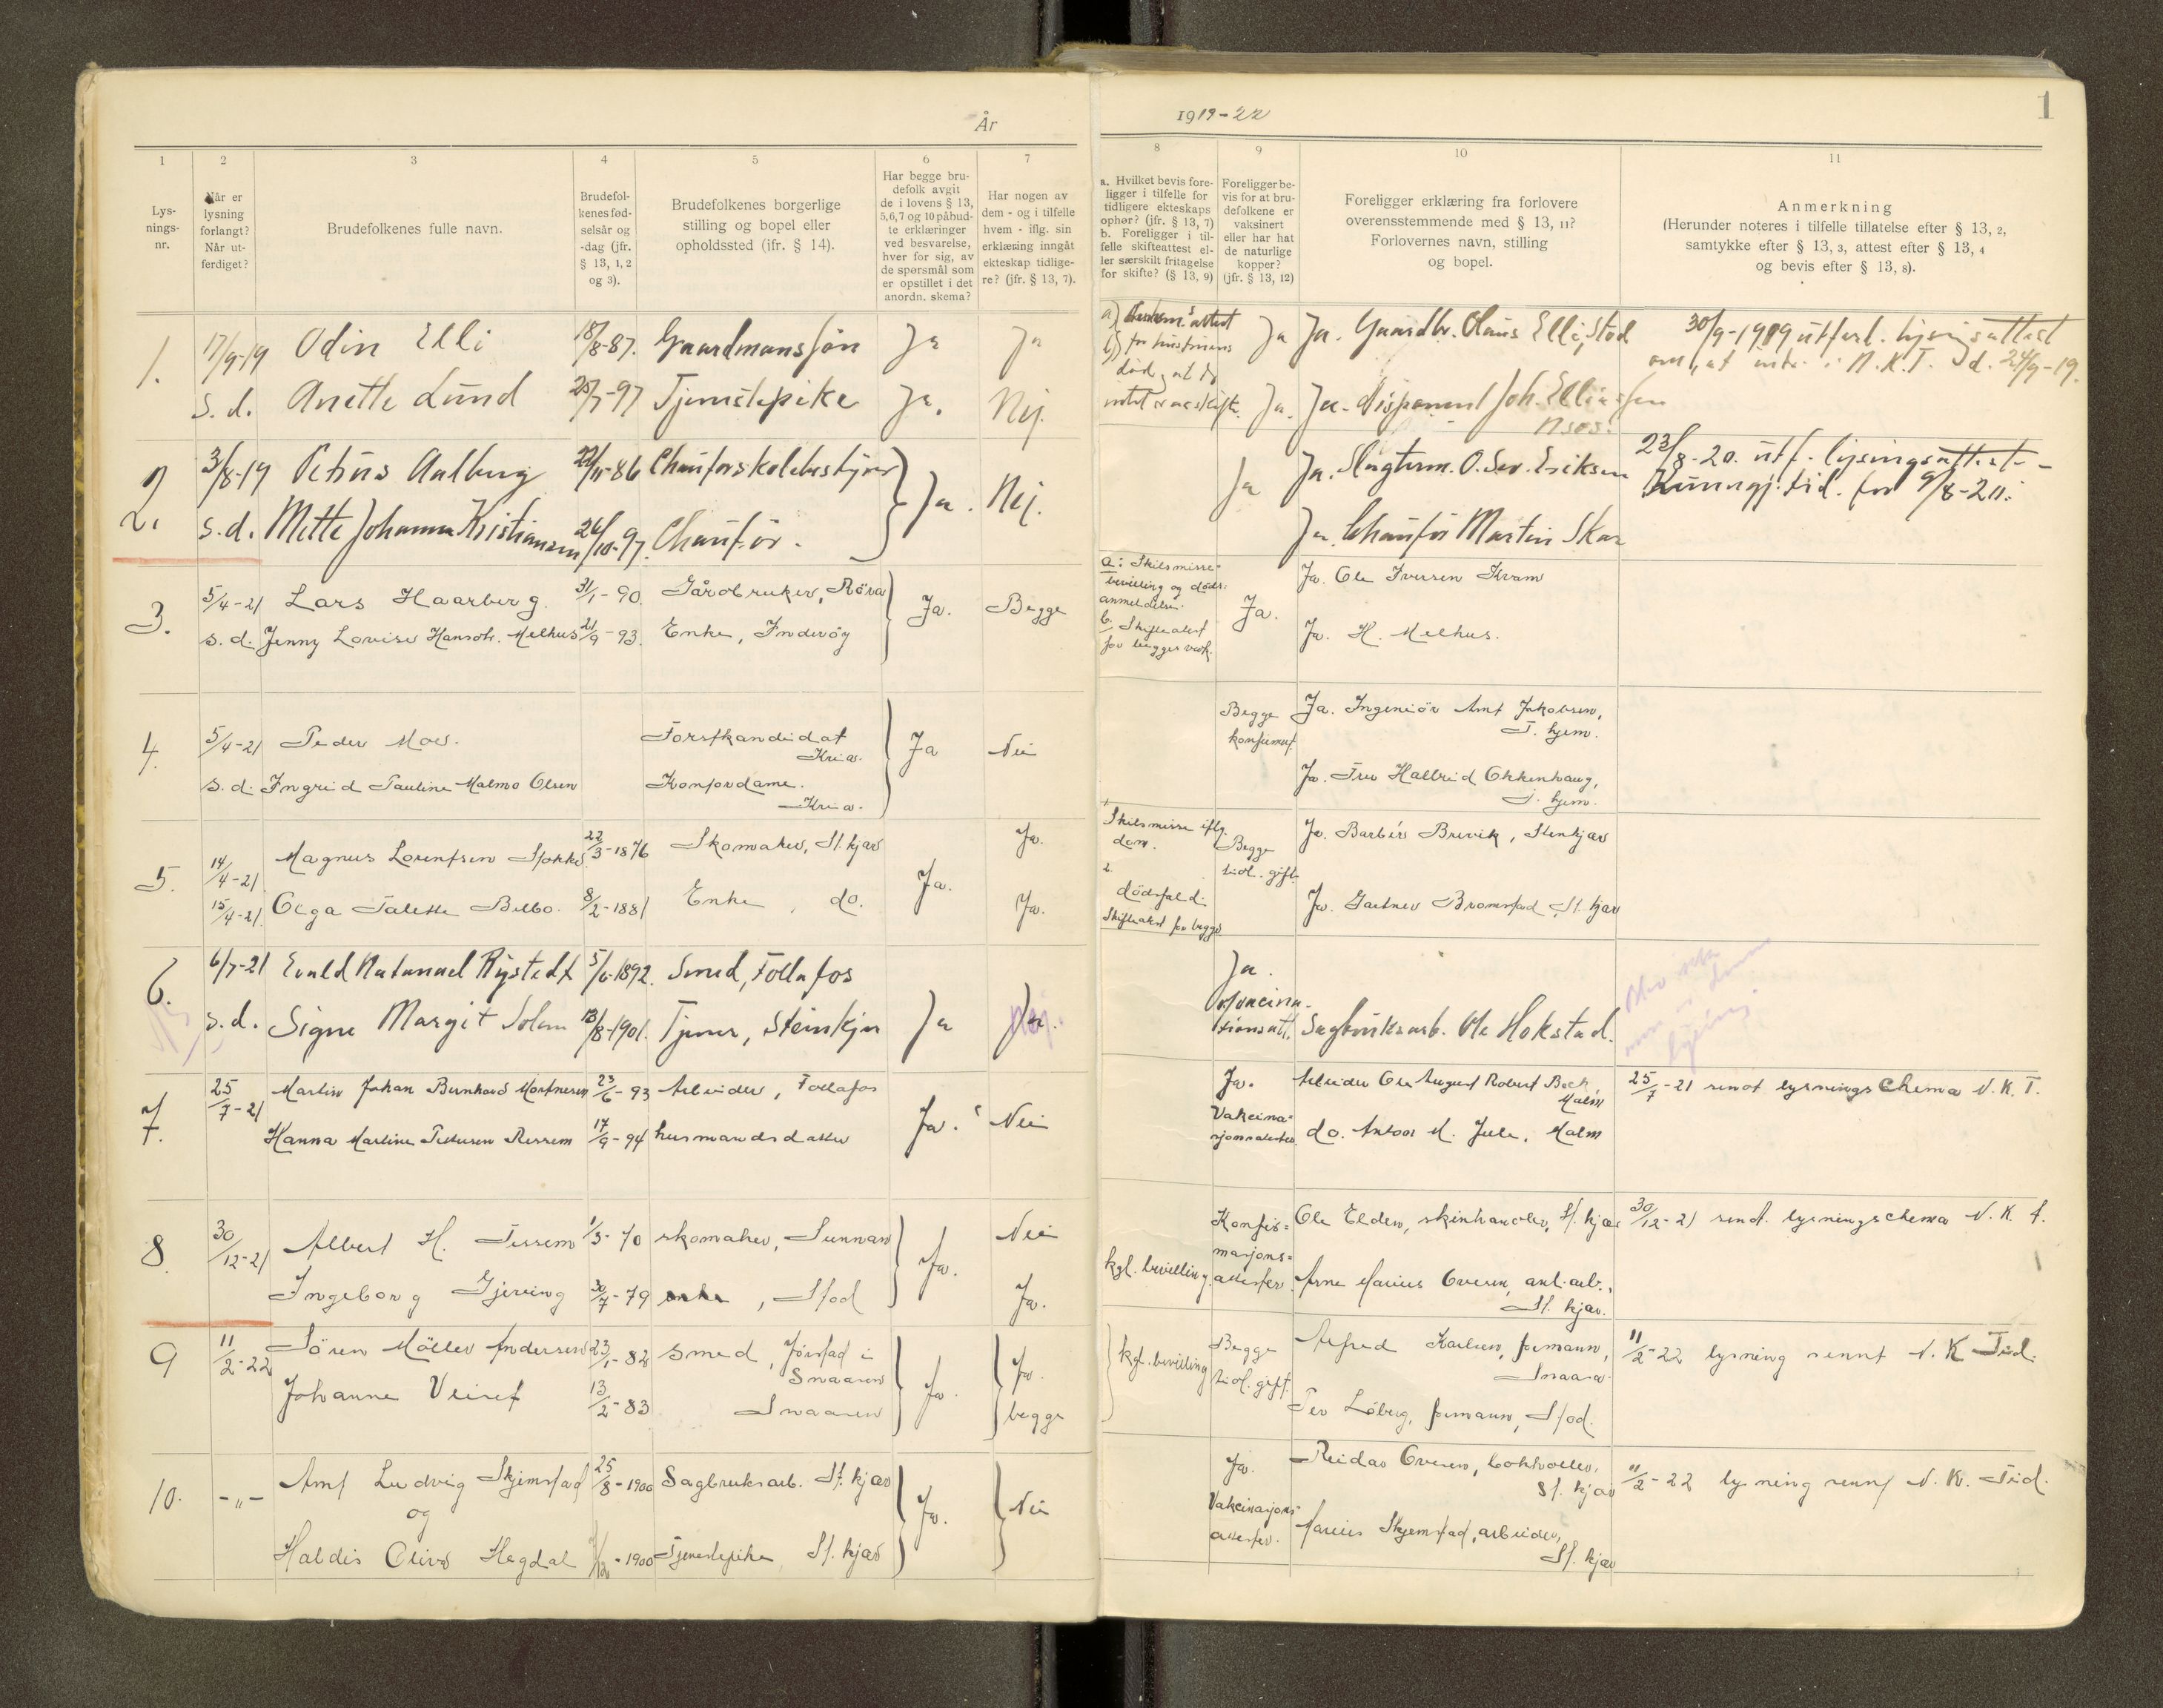 År
1919-22
1
1
Lys-
nings-
nr.
2
Når er
lysning
forlangt?
Når ut-
ferdiget?
3
Brudefolkenes fulle navn.
4
Brudefol-
kenes fød-
selsår og
-dag (jfr.
§ 13, 1, 2
og 3).
5
Brudefolkenes borgerlige
stilling og bopel eller
opholdssted (jfr. § 14).
6
Har begge bru-
defolk avgit
de i lovens § 13,
5,6,7 og 10 påbud-
te erklæringer
ved besvarelse,
hver for sig, av
de spørsmål som
er opstillet i det
anordn. skema?
7
Har nogen av
dem - og i tilfelle
hvem - iflg. sin
erklæring inngåt
ekteskap tidlige-
re? (jfr. § 13, 7).
8
a. Hvilket bevis fore-
ligger i tilfelle for
tidligere ekteskaps
ophør? (jfr. § 13, 7)
b. Foreligger i til-
felle skifteattest el-
ler særskilt fritagelse
for skifte? (§ 13, 9)
9
Foreligger be-
vis for at bru-
defolkene er
vaksinert
eller har hat
de naturlige
kopper?
(jfr. § 13, 12)
10
Foreligger erklæring fra forlovere
overensstemmende med § 13, 11?
Forlovernes navn, stilling
og bopel.
11
Anmerkning
(Herunder noteres i tilfelle tillatelse efter § 13, 2,
samtykke efter § 13, 3, attest efter § 13, 4
og bevis efter § 13, 8).
1. 17/9-19 Odin Elli 18/8-87. Gaardmanssøn Ja Ja
s. d. Anette Lund 20/7-97 Tjenestepike Ja. Nej.
a) attest
b) for hustruens
død, at
intet skifte.
Ja Ja. Gaardbr. Olaus Elli, Stod
Ja. Ja. Disponent Joh. Elliassen
Nsos.
30/9-1919 utferd. lysningsattest
om, at intr. i N.K.T. d. 24/9-19.
2. 3/8-19 Petrus Aalberg 22/11-86 Chauførskolebestyrer Ja. Nej.
s.d. Mette Johanna Kristiansen 26/10-97. Chaufør.
Ja Ja. Slagterm. O. Sev. Eriksen
Ja. Chauffør Martin Skar
23/8-20. utf. lysingsattest -
Kunngj. tid. for 9/8-20.
3. 5/4-21 Lars Haarberg. 31/1-90. Gårdbruker, Røra Ja. Begge
s. d. Jenny Lovise Hansdtr. Melhus 21/9-93. Enke, Inderøy
a: Skilsmisse-
bevilling og døds-
anmeldelse.
b. Skifteattest
for begges vedk.
Ja. Ja. Ole Iversen Kvam
Ja. H. Melhus.
4. 5/4-21 Peder Moe. Forstkandidat Ja Nei
Kria.
s. d. Ingrid Pauline Malmo Olsen Kontordame.
Kria.
Begge
konfirmert
Ja. Ingeniør Arnt Jakobsen,
T. hjem.
Ja. Fru Hallrid Okkenhaug,
T. hjem.
5. 14/4-21 Magnus Lorentsen 22/3-1876 Skomaker, St. kjær Ja. Ja.
15/4-21 Olga Talette Belbo. 8/2-1881 Enke, do. Ja.
Skilsmisse iflg.
dom.
2.
dødsfald.
Skifteattest for begge
Begge
tidl. gift.
Ja. Barbér Brevik, Stenkjær
Ja. Gartner Bromstad, St. kjær
6. 6/7-21 Evald Natanael Rystedt 5/6-1892. Smed, Follafos Ja
s. d. Signe Margit Solem 13/8-1901. Tjener, Steinkjer
Ja.
Vaccina-
tionsatt.
Sagbruksarb. Ole Hokstad.
7. 25/7-21 Martin Johan Bernhard Mortensen 23/6-93 Arbeider, Follafos Ja. Nei
Hanna Marline Pettersen Ressem 17/9-94 husmandsdatter
Ja.
Vakcina-
sjonsattester
Arbeider Ole August Robert Bach,
Malm
do. Anton M. Jule, Malm
25/7-21 sendt lysningschema N. K. T.
8. 30/12-21 Albert H. Tessem 1/3-70 skomaker, Sunnan Ja. Nei
Ingeborg Gjeving 30/7-79 enke, Stod Ja.
kgl. bevilling.
Konfir-
masjons-
attester.
Ole Elden, skinhandler, St. kjær
Arne Marius Ovesen, anl. arb.,
St. kjær.
30/12-21 sendt. lysningschema N. K. T.
9 11/2-22 Søren Møller Andersen 23/1-82 smed, Jørstad i
Snaasen
Ja. Ja.
begge
Johanne Veiset 13/2-83 Snaasen
kgl. bevilling
Begge
tidl. gift.
Alfred Karlsen, formann,
Snaasa.
Per Løberg, formann, Stod.
11/2-22 lysning sennt N. K. Tid.
10. -„- Arnt Ludvig Skjemstad 25/8-1900 Sagbruksarb. St. kjær Ja. Nei
og
Haldis Oliva Hegdal -1900 Tjenestepike St. kjær
Ja.
Vakcinasjons-
attester.
Reidar Ovesen, bokholder,
St. kjær
Marius Skjemstad, arbeider,
St. kjær
11/2-22 lysning sennt N. K. Tid.